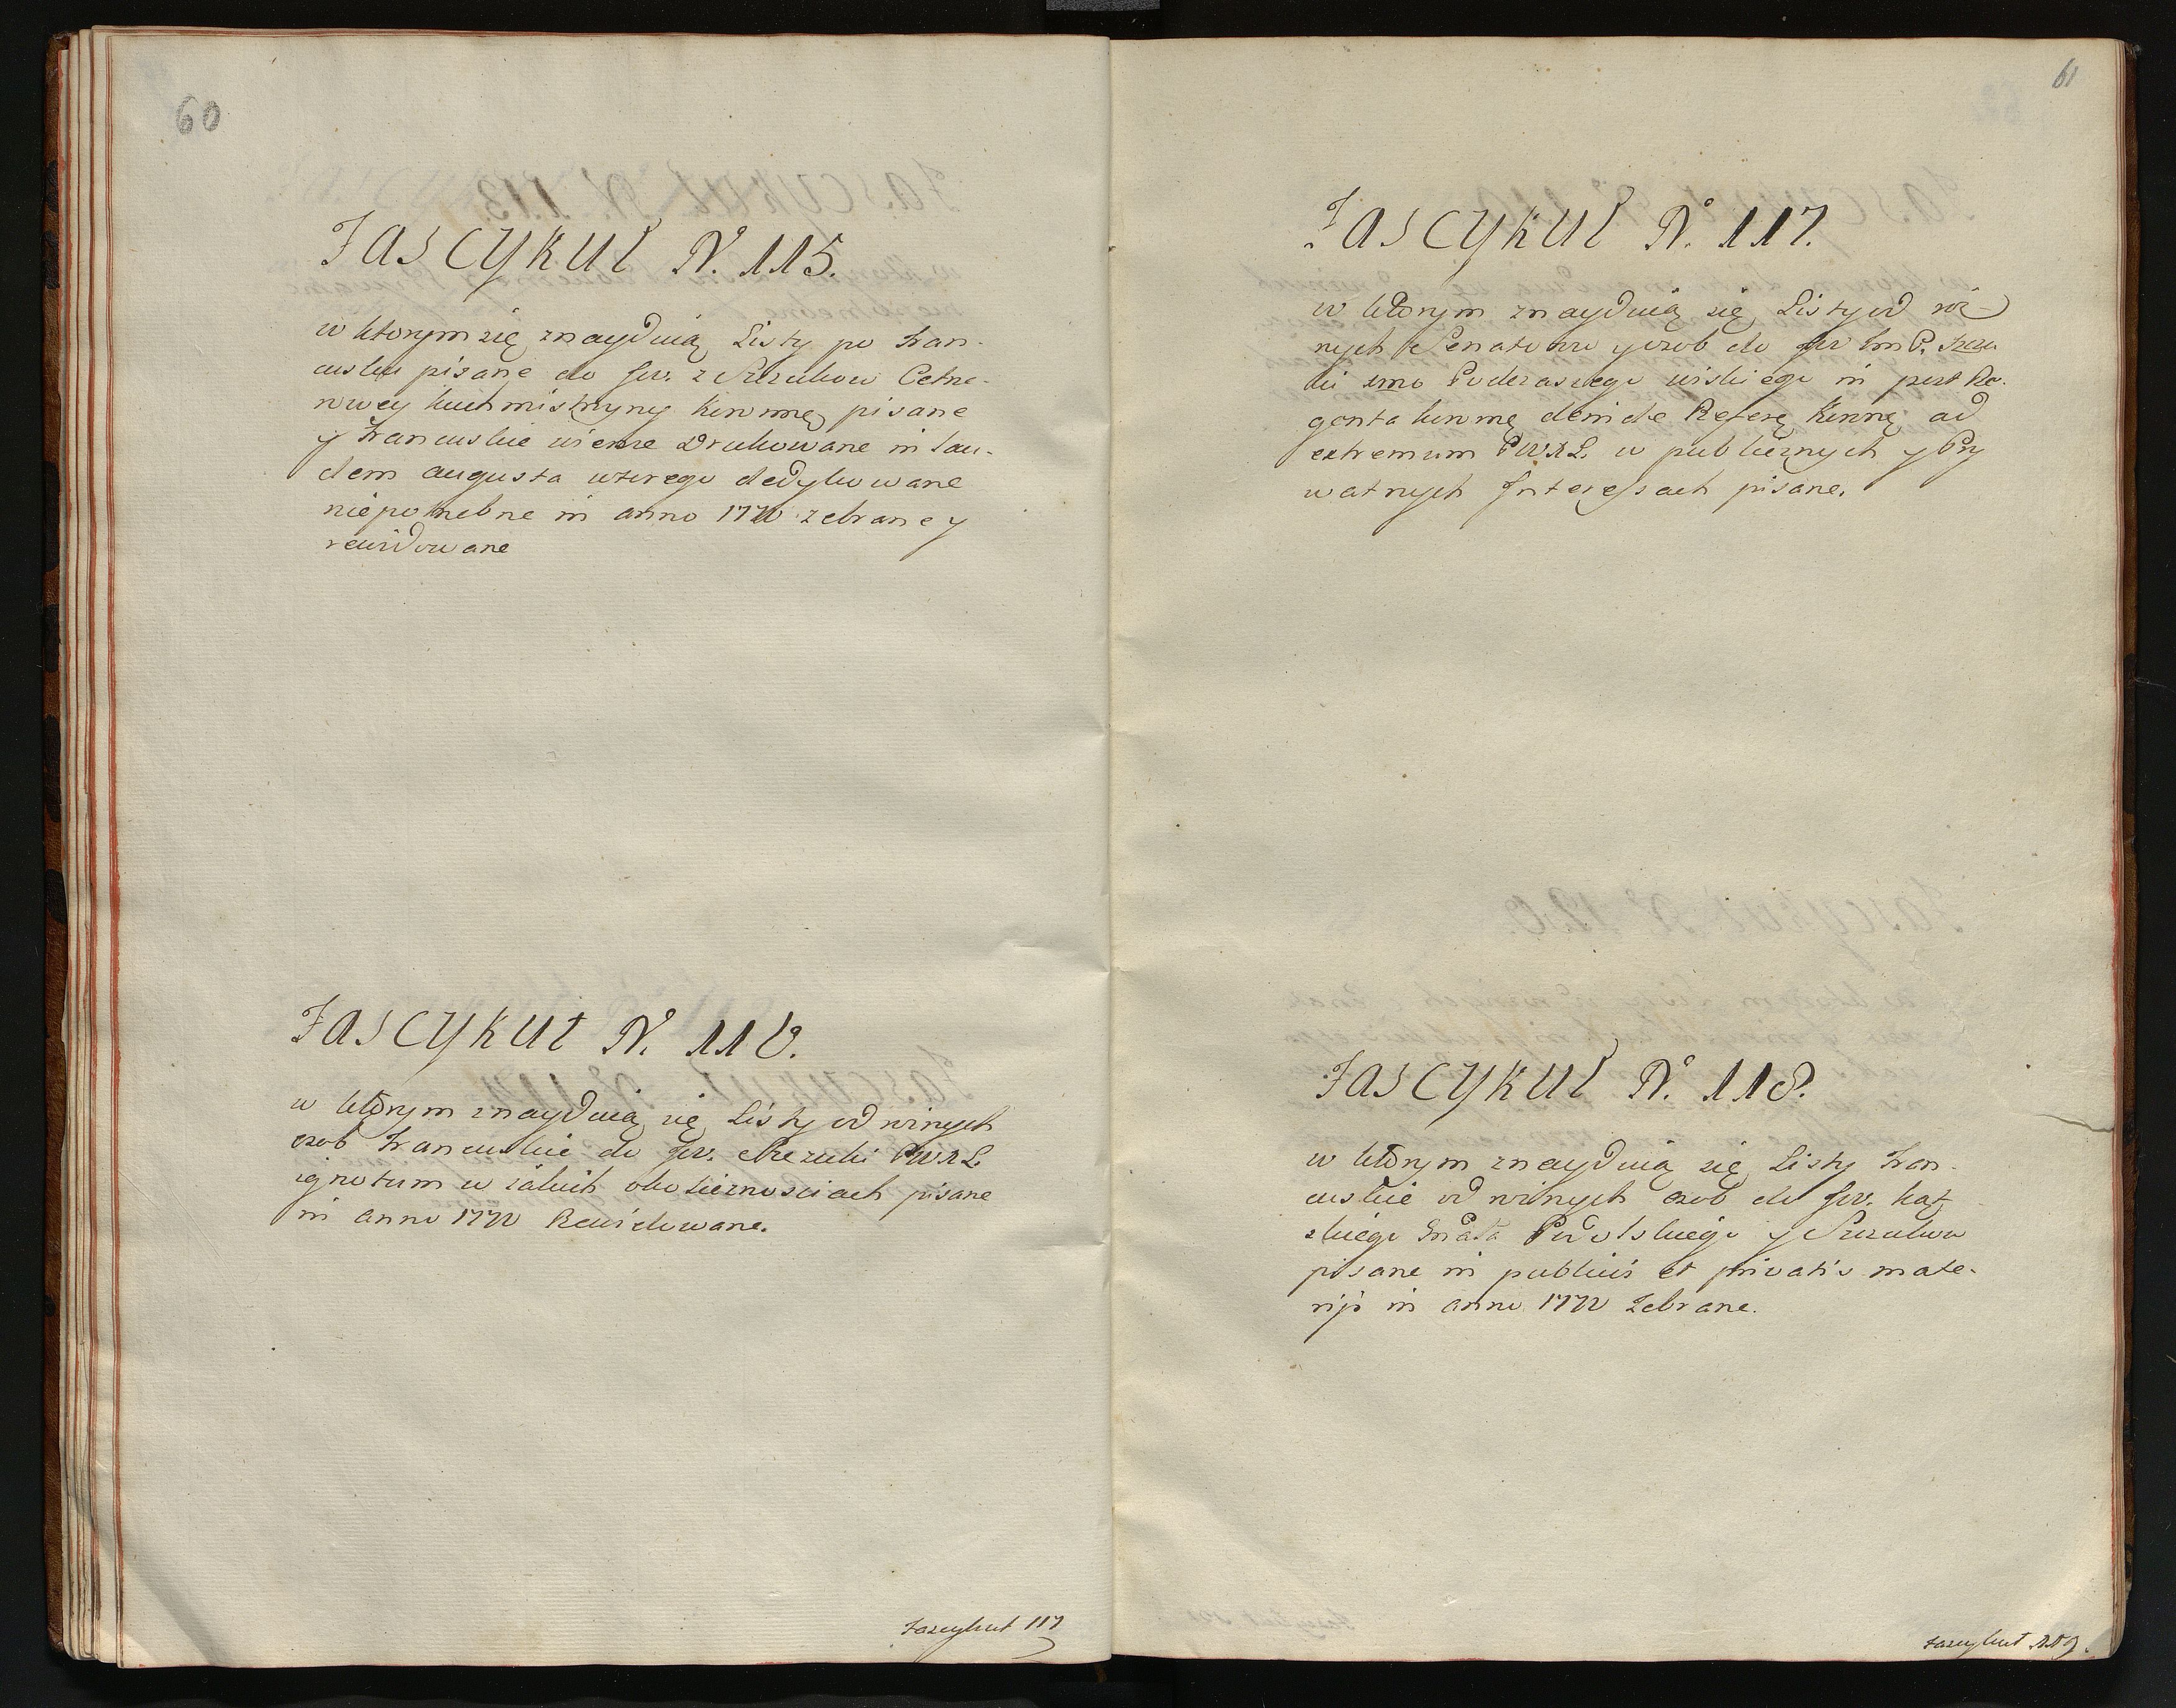 60
Fascykuł N. 115.
w ktorym się znayduią Listy po Fran-
cusku pisane do Jw. z Szczukow Cetne-
rowey kuchmistrzyny koronney pisane
y Francuskie wiersze Drukowane in lau-
dem augusta wtorego dedykowane
niepotrzebne in anno 1770 zebrane y
rewidowane
Fascykuł N. 116.
w ktorym znayduią się Listy od roznych
osob Francuskie do Jw. Szczuki PWXL
ignotum w iakich okolicznosciach pisane
in anno 1770 Rewidowane.
Fascykuł 117
61
Fascykuł N. 117.
w ktorym znayduią się Listy od roz-
nych Senatorow y osob do Jw Im P. Szczu
ki Podczaszego
deinde ad
extremum PWXL. w publicznych y Pry
watnych Interessach pisane.
Fascykuł N. 118.
w ktorym znayduią się Listy Fran-
cuskie od roznych osob do Jw. Kąt
skiego Podolskiego y Szczukow
pisane in publicis et privatis mate-
rijs in anno 1770 zebrane.
Fascykuł 119.